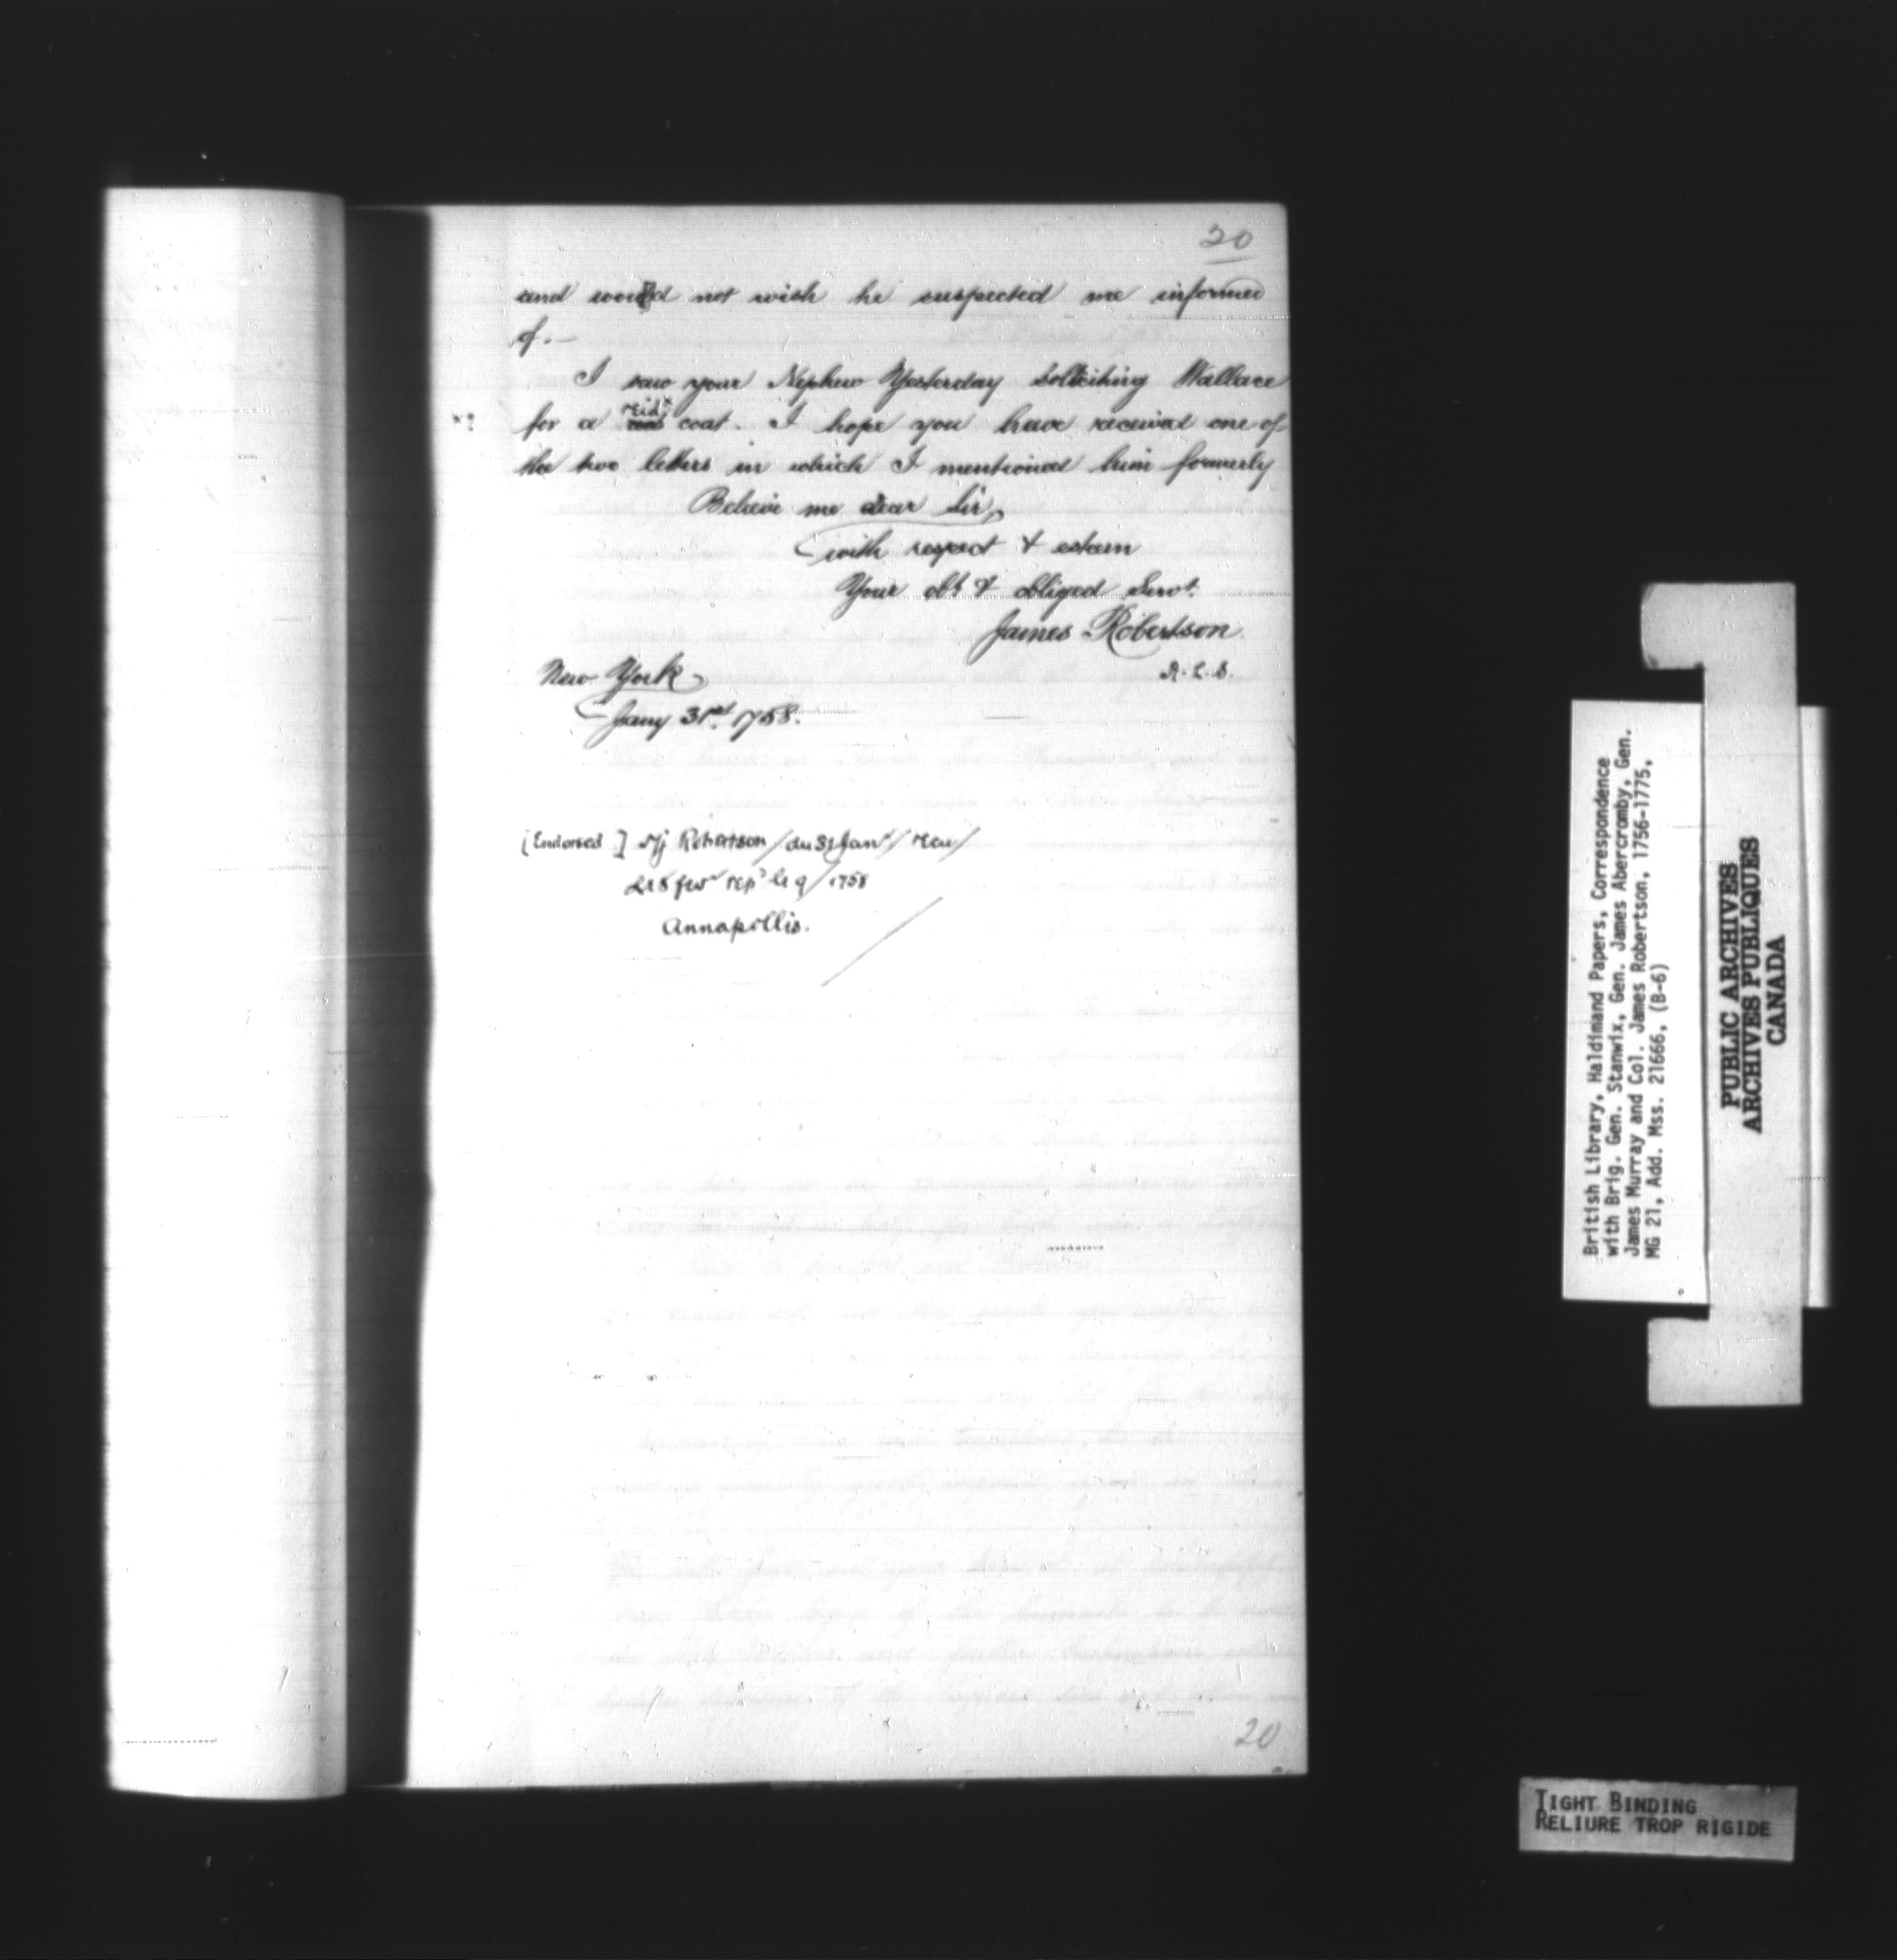 20
and would not wish he suspected me informed
of.—
I saw your Nephew Yesterday solliciting Wallace
x? for a reid x coat. I hope you have received one of
the two letters in which I mentioned him formerly
Believe me dear Sir,
with respect & esteem
Your obt & obliged Servt.
James Robertson
A. L. S.
New York
Jany 31st 1758.
[Endorsed] Mj Robertson / du 31 Janr / recu /
Le 8 fevr repd le 9 / 1758
Annapollis.
20
British Library, Haldimand Papers, Correspondence
with Brig. Gen. Stanwix, Gen. James Abercromby, Gen.
James Murray and Col. James Robertson, 1756-1775,
MG 21, Add. Mss. 21666, (B-6)
PUBLIC ARCHIVES
ARCHIVES PUBLIQUES
CANADA
TIGHT BINDING
RELIURE TROP RIGIDE